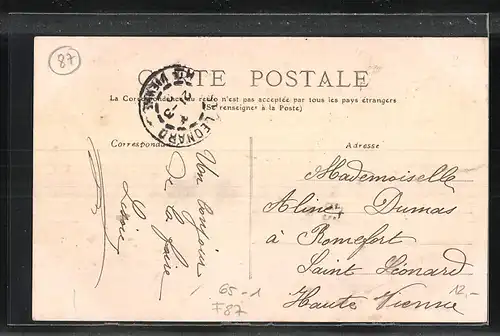 87
CARTE POSTALE
La Correspondance au recto n'est pas acceptée par tous les pays étrangers
(Se renseigner à la Poste)
LEONARD
HTE VIENNE
Correspondance
Adresse
Un bonjour
de la foire
Mademoiselle
Aline Dumas
à Romefort
Saint Léonard
Haute Vienne
12.-
65-1
F87